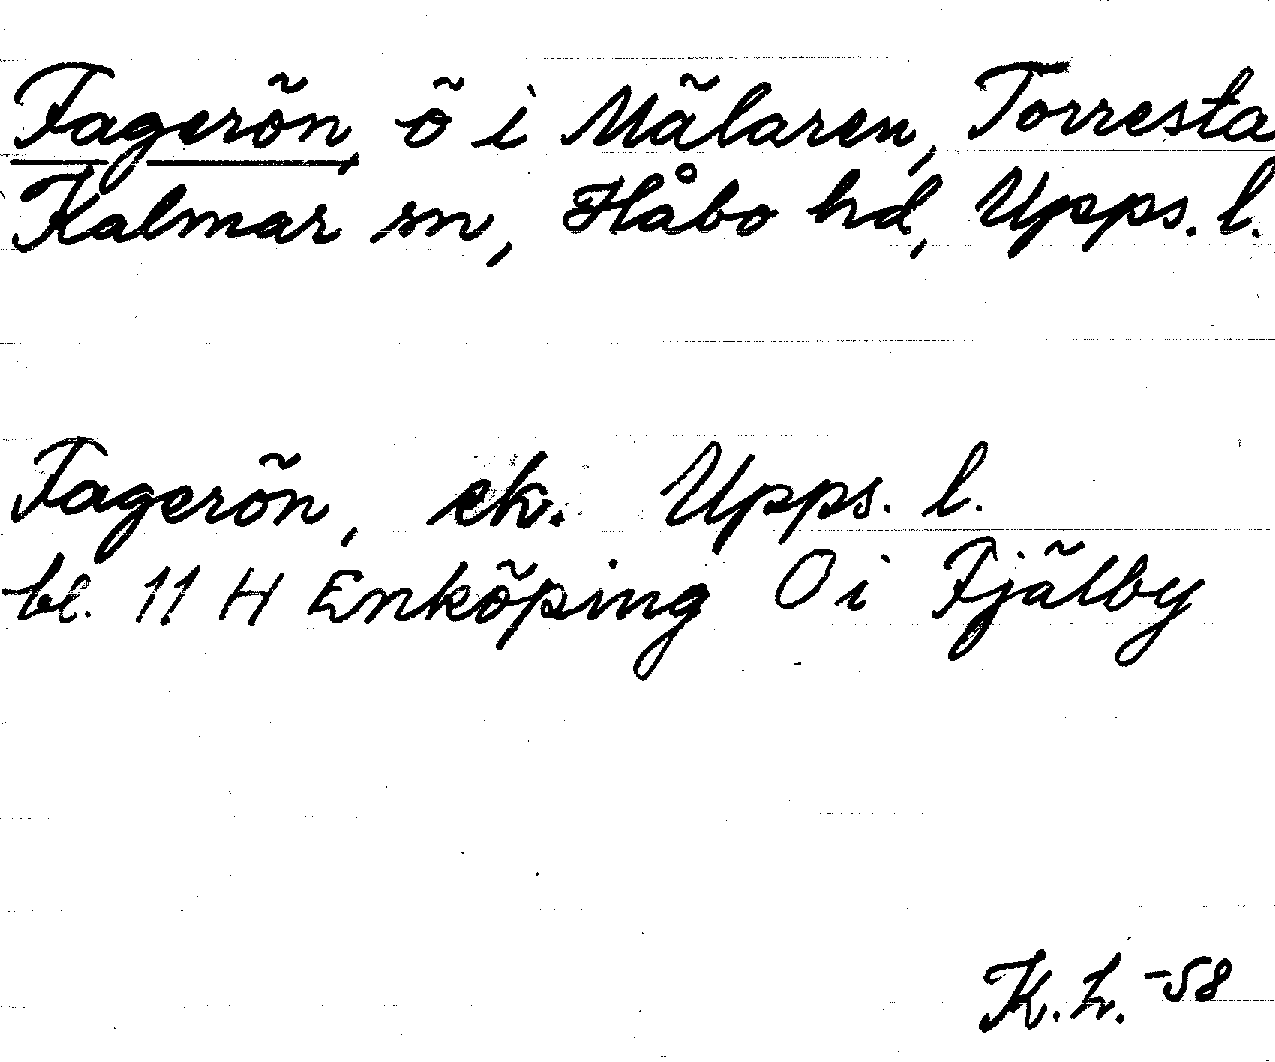 Fagerön, ö i Mälaren, Torresta
Kalmar sn, Håbo hd, Upps. l.
Fagerön, ek. Upps. l.
bl. 11 H Enköping O i Fjälby
K. h. -58